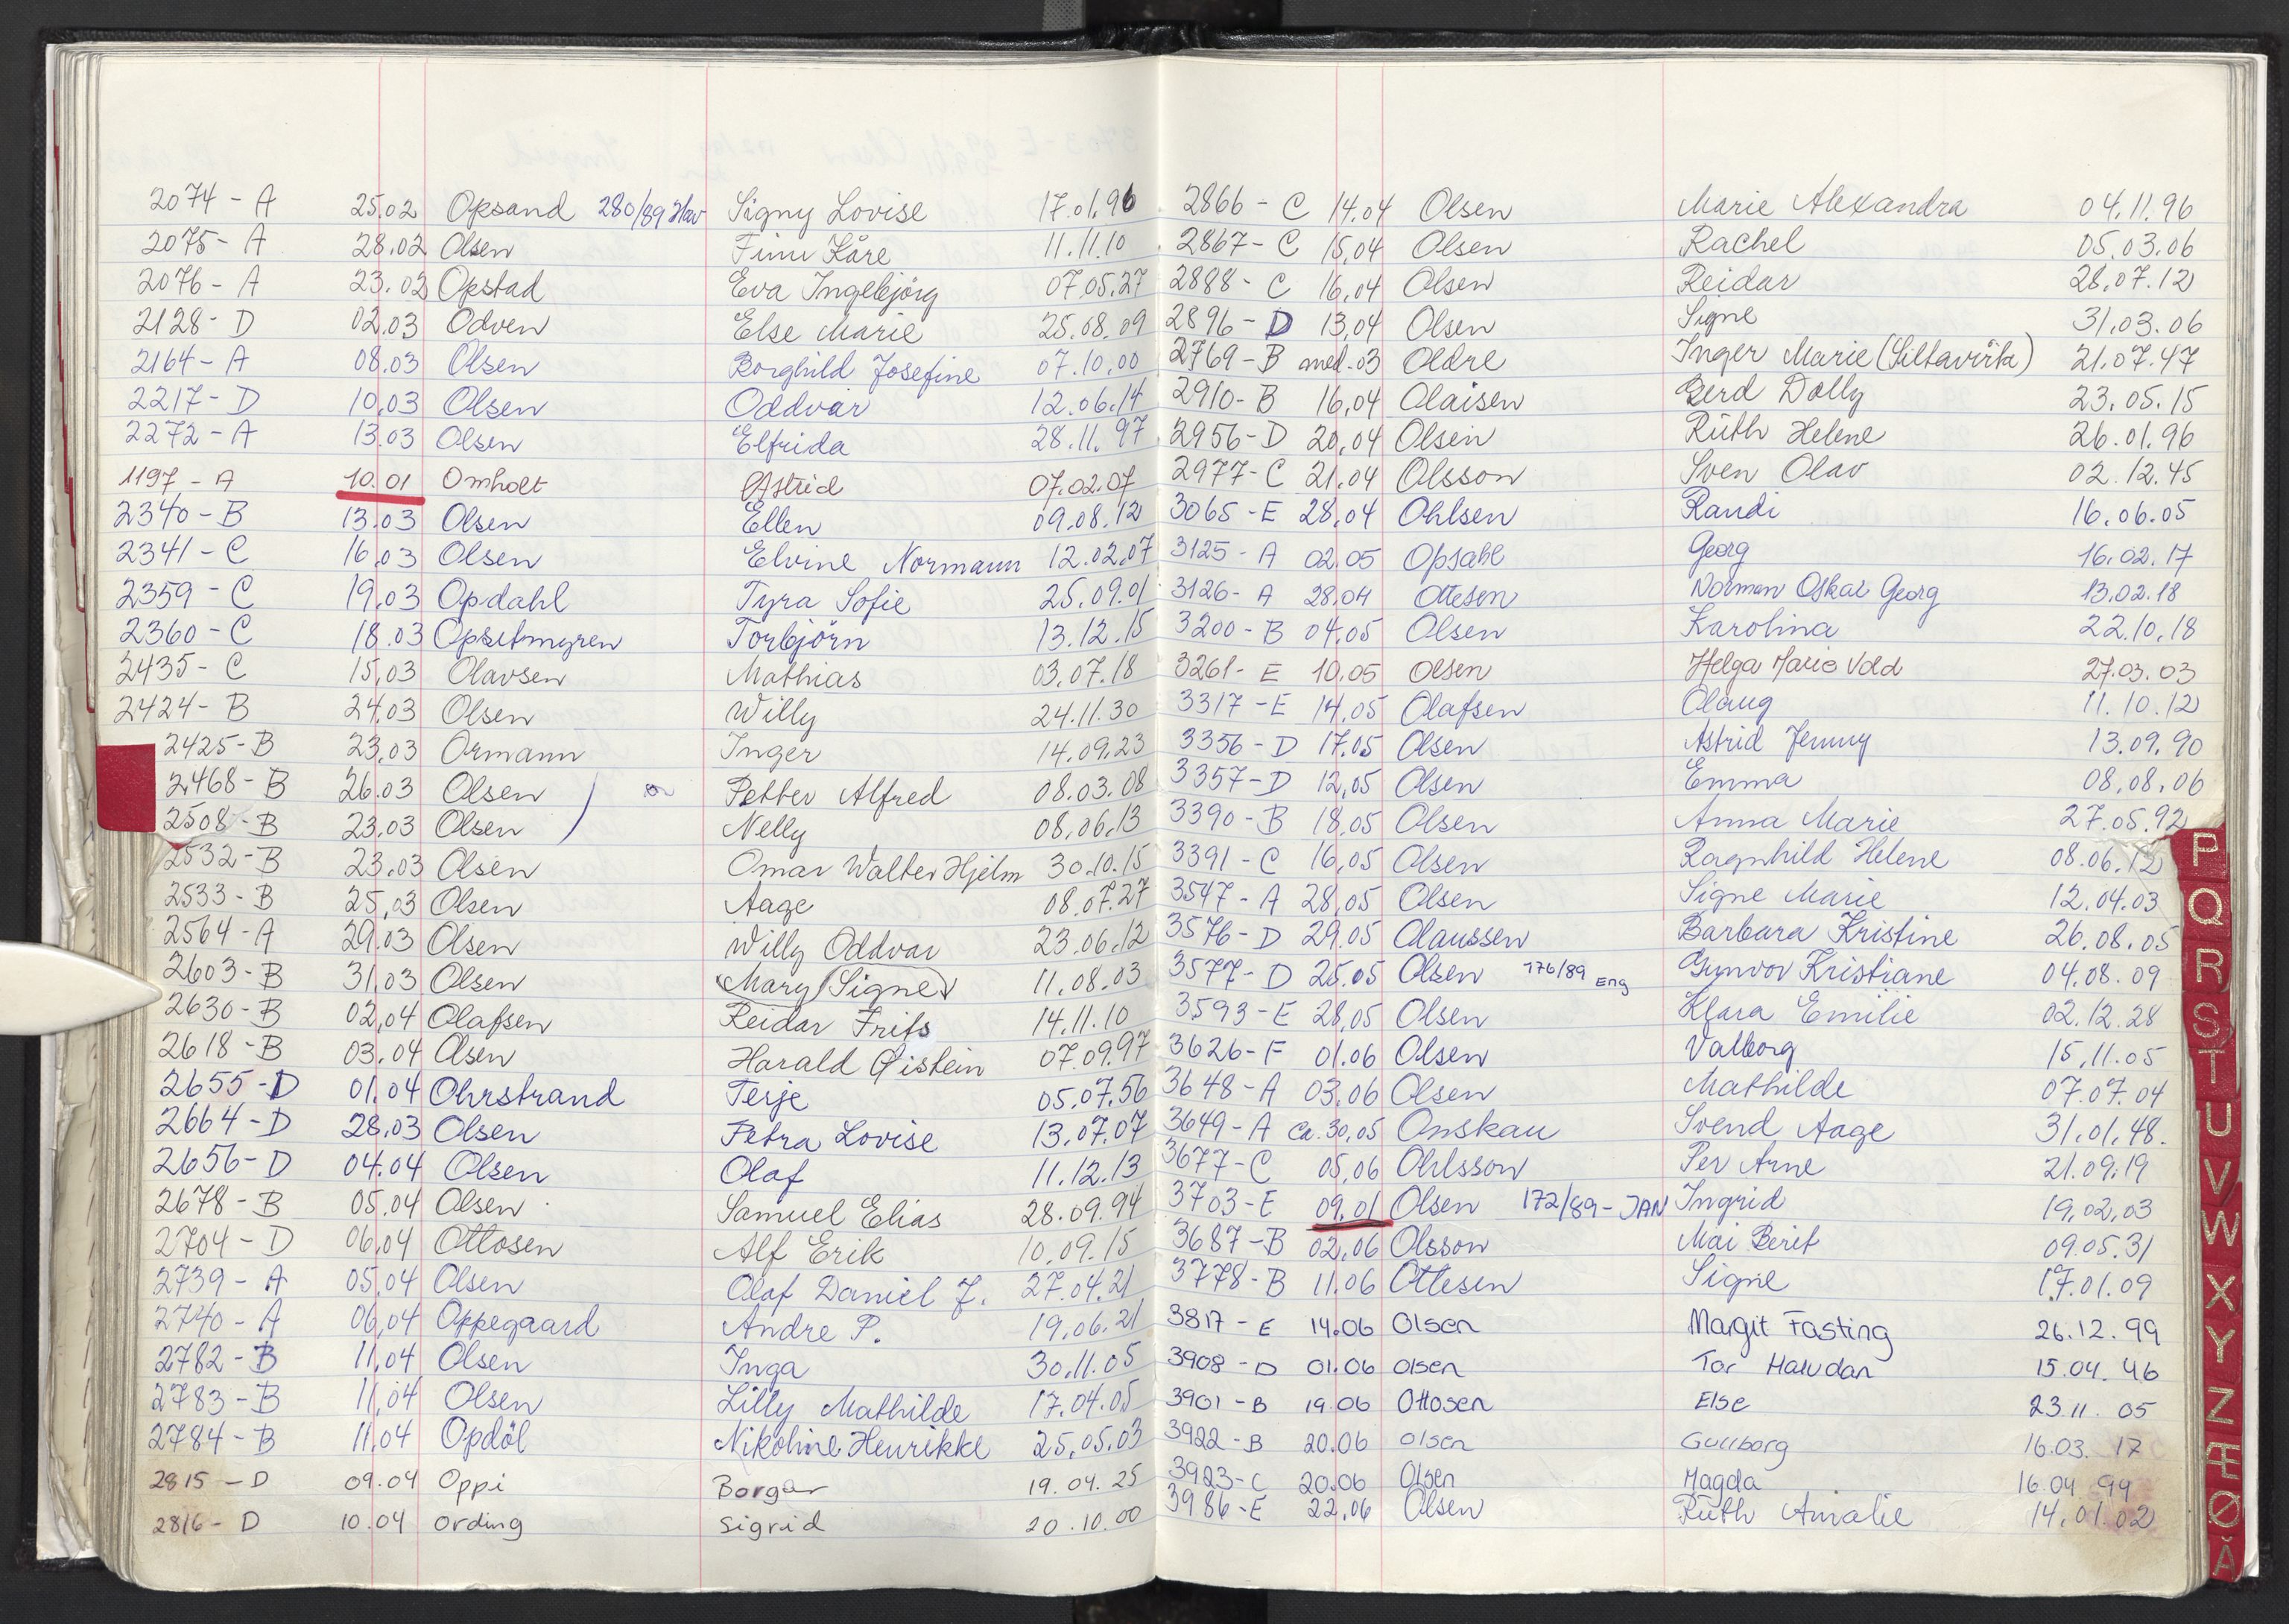 2074 - A 25.02 Opsand 280/89 Hav Signy Lovise 17.01.96
2075 - A 28.02 Olsen Finn Kåre 11.11.10
2076 - A 23.02 Opstad Eva Ingebjörg 07.05.27
2128 - D 02.03 Odven Else Marie 25.08.09
2164 - A 08.03 Olsen Borghild Josefine 07.10.00
2217 - D 10.03 Olsen Oddvar 12.06.14
2272 - A 13.03 Olsen Elfrida 28.11.97
1197 - A 10.01 Omholt Astrid 07.02.07
2340 - B 13.03 Olsen Ellen 09.08.12
2341 - C 16.03 Olsen Elvine Normann 12.02.07
2359 - C 19.03 Opdahl Tyra Sofie 25.09.01
2360 - C 18.03 Opsetmyren Torbjörn 13.12.15
2435 - C 15.03 Olavsen Mathias 03.07.18
2424 - B 24.03 Olsen Willy 24.11.30
2425 - B 23.03 Ormann Inger 14.09.23
2468 - B 26.03 Olsen Petter Alfred 08.03.08
2508 - B 23.03 Olsen Nelly 08.06.13
2532 - B 23.03 Olsen Omar Walter Hjelm 30.10.15
2533 - B 25.03 Olsen Aage 08.07.27
2564 - A 29.03 Olsen Willy Oddvar 23.06.12
2603 - B 31.03 Olsen Mary (Signe) 11.08.03
2630 - B 02.04 Olafsen Reidar Frits 14.11.10
2618 - B 03.04 Olsen Harald Øistein 07.09.97
2655 - D 01.04 Ohrstrand Terje 05.07.56
2664 - D 28.03 Olsen Petra Lovise 13.07.07
2656 - D 04.04 Olsen Olaf 11.12.13
2678 - B 05.04 Olsen Samuel Elias 28.09.94
2704 - D 06.04 Ottosen Alf Erik 10.09.15
2739 - A 05.04 Olsen Olaf Daniel J. 27.04.21
2740 - A 06.04 Oppegaard Andre P. 19.06.21
2782 - B 11.04 Olsen Inga 30.11.05
2783 - B 11.04 Olsen Lilly Mathilde 17.04.05
2784 - B 11.04 Opdöl Nikoline Henrikke 25.05.03
2815 - D 09.04 Oppi Borgar 19.04.25
2816 - D 10.04 Ording Sigrid 20.10.00
2866 - C 14.04 Olsen Marie Alexandra 04.11.96
2867 - C 15.04 Olsen Rachel 05.03.06
2888 - C 16.04 Olsen Reidar 28.07.12
2896 - D 13.04 Olsen Signe 31.03.06
2769 - B med.03 Oldre Inger Marie (Siltavirta) 21.07.47
2910 - B 16.04 Olaisen Gerd Dolly 23.05.15
2956 - D 20.04 Olsen Ruth Helene 26.01.96
2977 - C 21.04 Olsson Sven Olav 02.12.45
3065 - E 28.04 Ohlsen Randi 16.06.05
3125 - A 02.05 Opsahl Georg 16.02.17
3126 - A 28.04 Ottesen Norman Oskar Georg 13.02.18
3200 - B 04.05 Olsen Karolina 22.10.18
3261 - E 10.05 Olsen Helga Marie Vold 27.03.03
3317 - E 14.05 Olafsen Olaug 11.10.12
3356 - D 17.05 Olsen Astrid Jenny 13.09.90
3357 - D 12.05 Olsen Emma 08.08.06
3390 - B 18.05 Olsen Anna Marie 27.05.92
3391 - C 16.05 Olsen Ragnhild Helene 08.06.12
3547 - A 28.05 Olsen Signe Marie 12.04.03
3576 - D 29.05 Olaussen Barbara Kristine 26.08.05
3577 - D 25.05 Olsen 176/89 Eng Gunvor Kristiane 04.08.09
3593 - E 28.05 Olsen Klara Emilie 02.12.28
3626 - F 01.06 Olsen Valborg 15.11.05
3648 - A 03.06 Olsen Mathilde 07.07.04
3649 - A ca. 30.05 Onskau Svend Aage 31.01.48.
3677 - C 05.06 Ohlsson Per Arne 21.09.19
3703 - E 09.01 Olsen 172/89 - JAN Ingrid 19.02.03
3687 - B 02.06 Olsson Mai Berit 09.05.31
3778 - B 11.06 Ottesen Signe 17.01.09
3817 - E 14.06 Olsen Margit Fasting 26.12.99
3908 - D 01.06 Olsen Tor Halvdan 15.04.46
3901 - B 19.06 Ottosen Else 23.11.05
3922 - B 20.06 Olsen Gullborg 16.03.17
3923 - C 20.06 Olsen Magda 16.04.99
3986 - E 22.06 Olsen Ruth Amalie 14.01.02
P
Q
R
S
T
U
V
W
X
Y
Z
Æ
Ø
Å